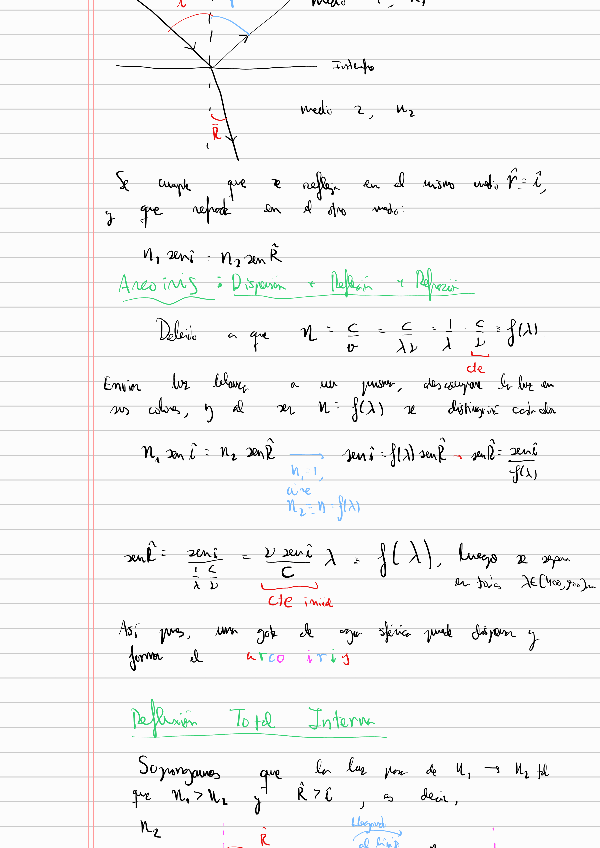 i r medio
Interfase
medio 2, n₂
R̂
Se cumple que se refleja en el mismo medio r̂ = î,
y que refracta en el otro medio:
n₁ sen î = n₂ sen R̂
Arcoiris: Dispersión + Reflexión + Refracción
Debido a que n = c/v = c/λν = 1/λ · c/ν = f(λ)
cte
Enviar luz blanca a un prisma, descompone la luz en
sus colores, y al ser n = f(λ) se distinguirá cada color
n₁ sen î = n₂ sen R̂ → sen î = f(λ) sen R̂ → sen R̂ = sen î / f(λ)
n₁ 1,
aire
n₂ = n = f(λ)
sen R̂ = sen î / (1/λ c/ν) = ν sen î / c λ = f(λ), luego se separa
en λ∈[400, 700]
cte inicial
Así pues, una gota de agua esférica puede dispersar y
formar el arco iris
Reflexión Total Interna
Supongamos que la luz pasa de n₁ → n₂ tal
que n₁ > n₂ y R̂ > î, es decir,
n₂ R̂ Llegará
al